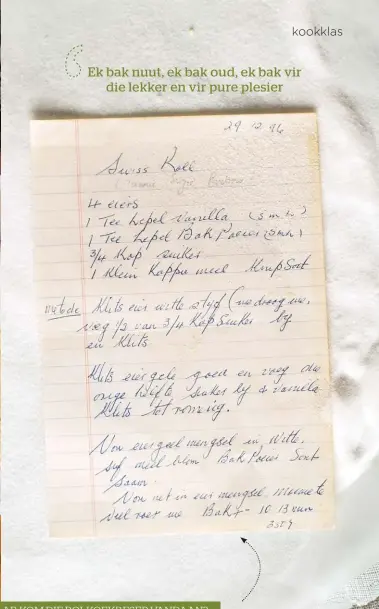 kookklas
Ek bak nuut, ek bak oud, ek bak vir
die lekker en vir pure plesier
29 12 96
Swiss Roll
4 eiers
1 Tee Lepel Vanilla (5 m l)
1 Tee Lepel Bak Poeier (5ml)
3/4 Kop suiker
1 Klein Koppie meel Knip Sout
metode Klits eier witte styf (nie droog nie,
voeg 1/2 van 3/4 Kop Suiker by
en Klits
Klits eiergele goed en voeg die
orige helfte suiker by & vanilla
Klits tot romerig.
Vou eiergeel mengsel in witte,
sif meel blom Bak Poeier Sout
saam.
Vou net in eier mengsel, moenie te
veel roer nie Bak 7 - 10 13 min